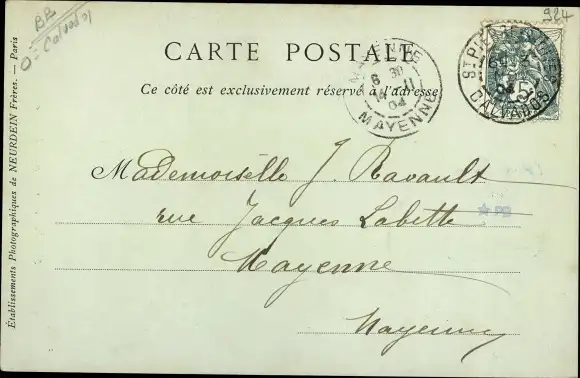 BB
924
CARTE POSTALE
Ce côté est exclusivement réservé à l'adresse
MAYENNE
6 30
11
04
MAYENNE
ST PIERRE
CALVADOS
5
Mademoiselle J. Ravault
rue Jacques Labitte
PB
Mayenne
Mayenne
Établissements Photographiques de NEURDEIN Frères. — Paris